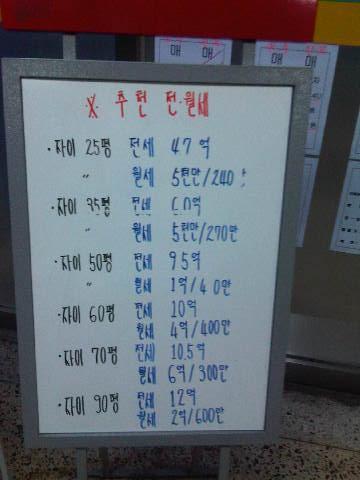 ※ 추천 전·월세
·자이 25평 전세 4.7억
〃 월세 5천만/240
·자이 35평 전세
〃 월세 5천만/270만
·자이 50평 전세 9.5억
〃 월세 1억/ 만
·자이 60평 전세 10억
월세 4억/400만
·자이 70평 전세 10.5억
월세 6억/300만
·자이 90평 전세 12억
월세 2억/600만
매
매
매
매